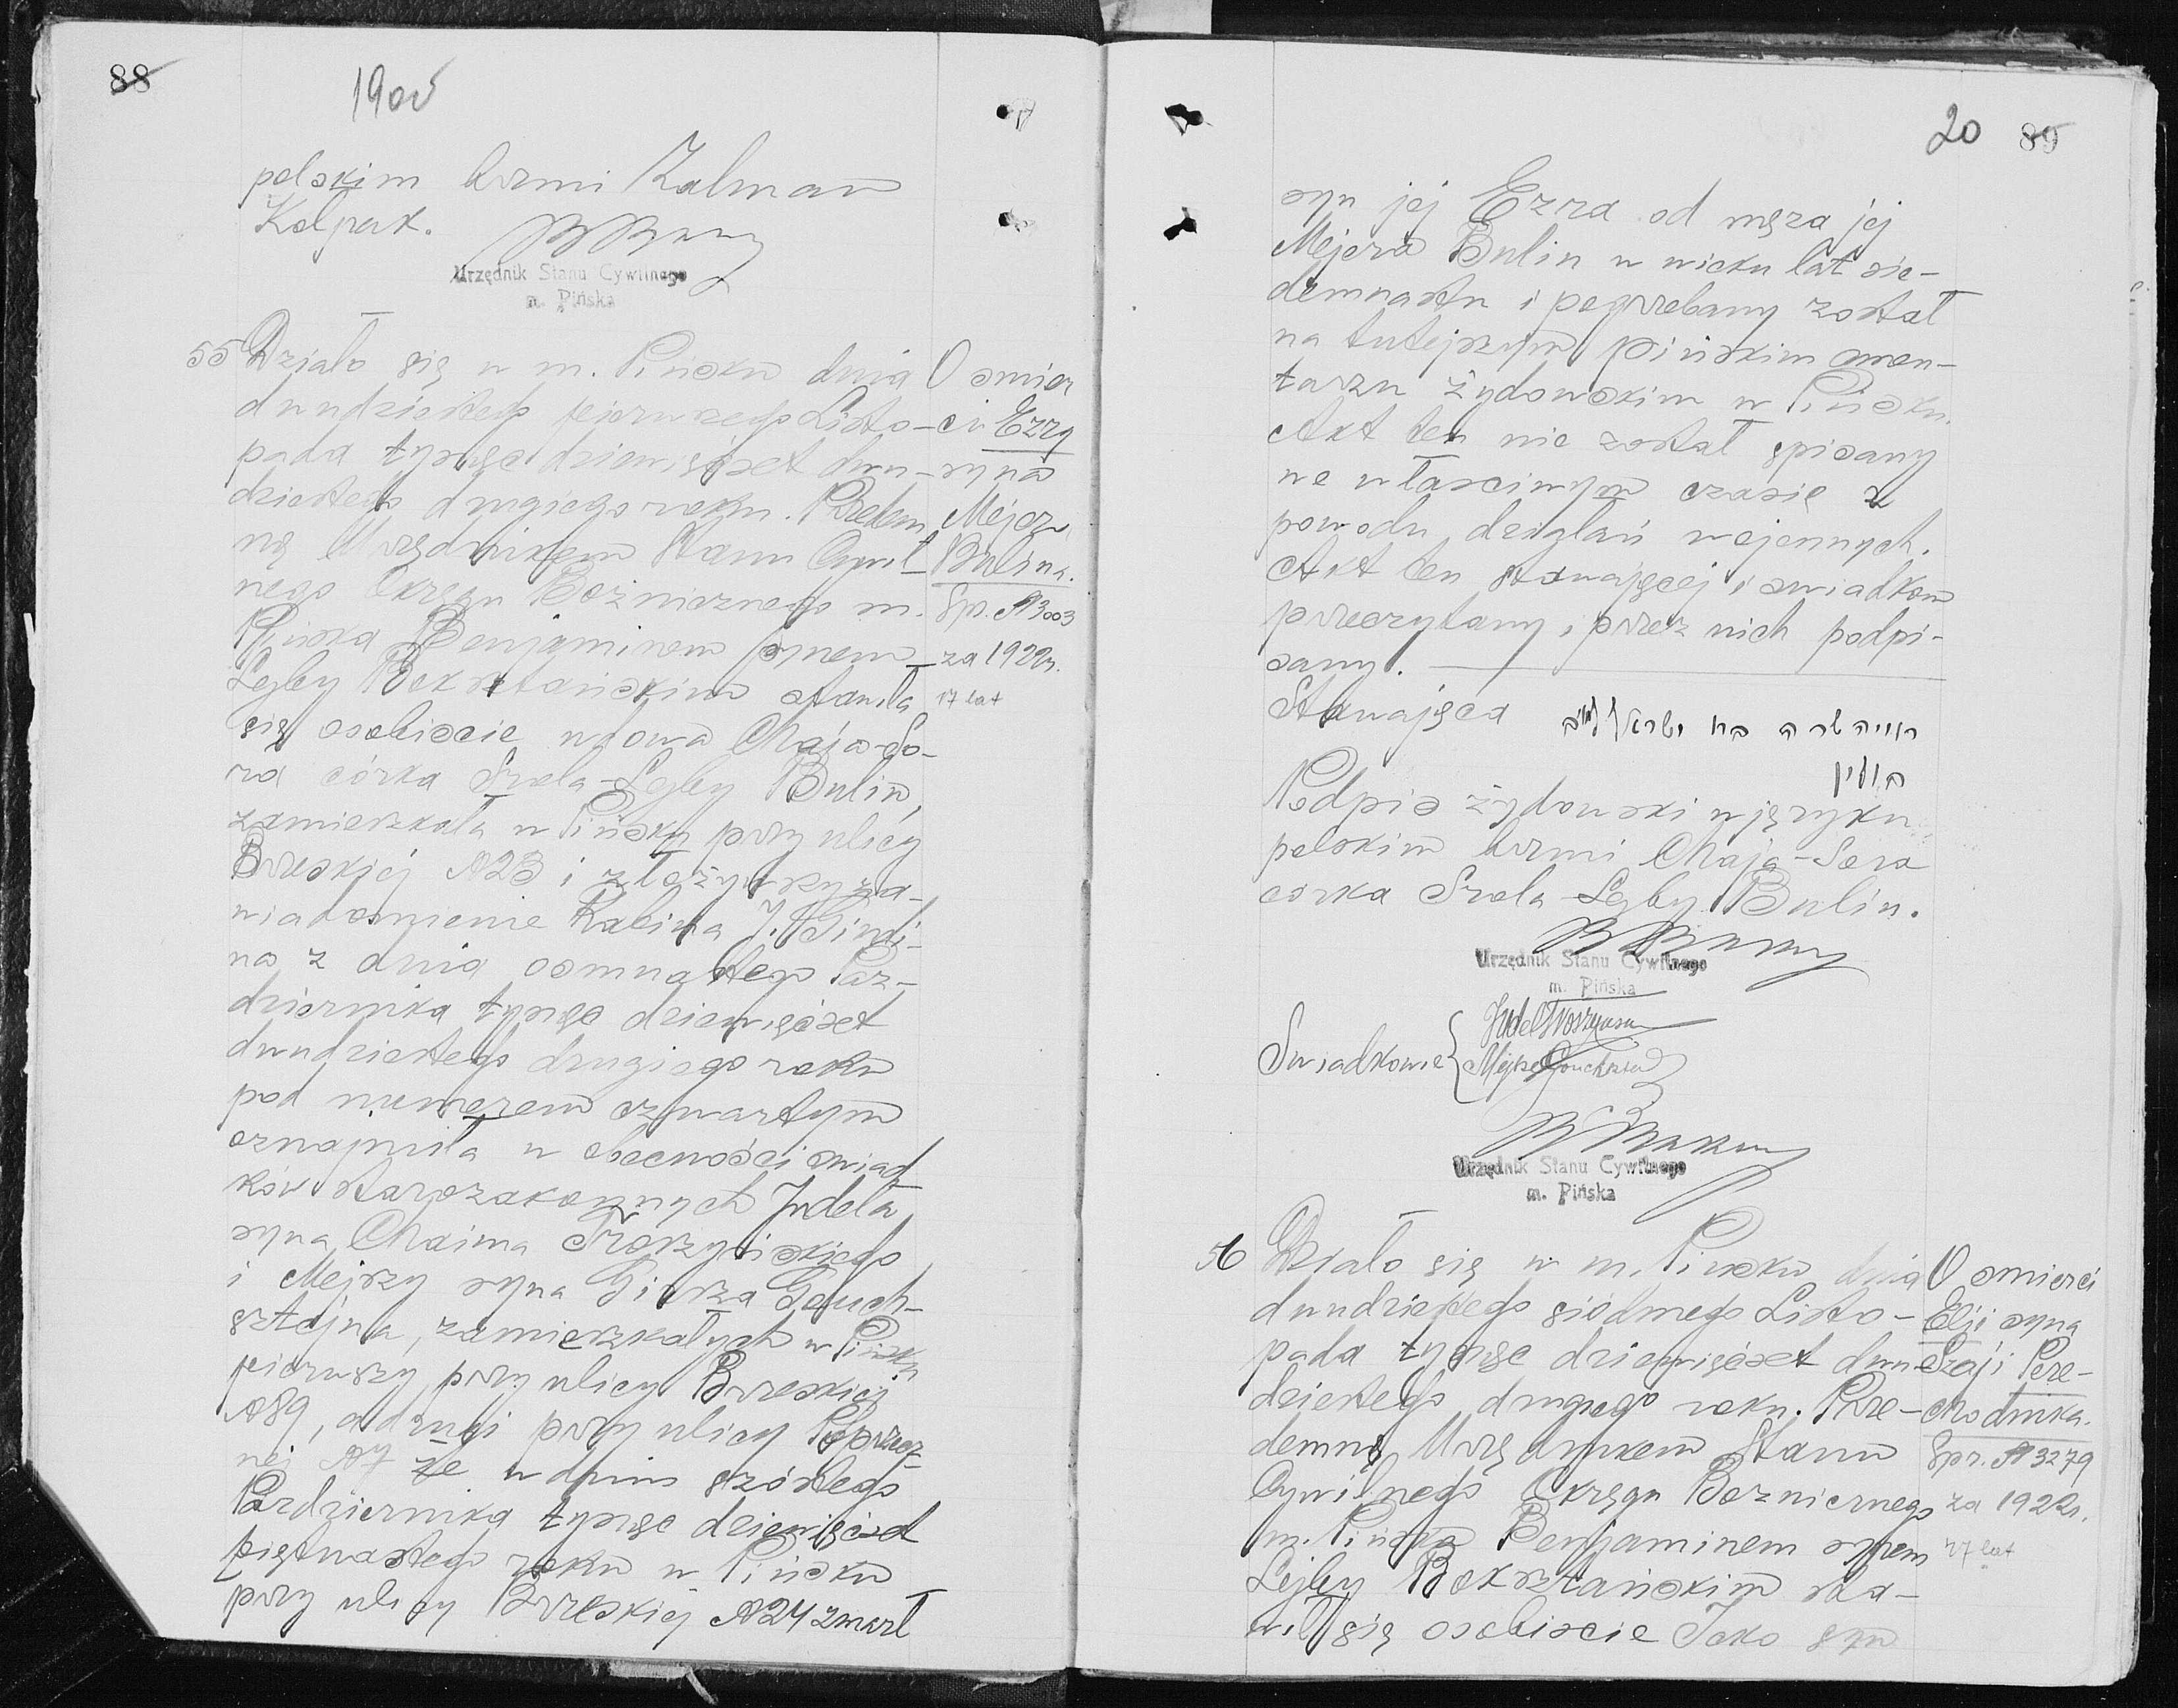 88
1905
polskim brzmi Zalman
Kolpak.
Urzędnik Stanu Cywilnego
m. Pińska
55 Działo się w m. Pińsku dnia
dwudziestego pierwszego Listo-
pada tysiąc dziewięćset dwu-
dziestego drugiego roku. Przedem
ną Urzędnikiem Stanu Cywil-
nego Okręgu Bożnicznego m.
Pińska Benjaminem synem
Lejby Boksztańskim stawiła
się osobiście wdowa Chaja-So-
ra córka Srola-Lejby Bulin,
zamieszkała w Pińsku przy ulicy
Brzeskiej №23 i złożywszy za-
wiadomienie Rabina J. Gindi-
na z dnia osmnastego Paź-
dziernika tysiąc dziewięćset
dwudziestego drugiego roku
pod numerem czwartym
oznajmiła w obecności świad-
ków starozakonnych Judela
syna Chaima Troszyńskiego
i Mejszy syna Girsza Gouch-
sztejna, zamieszkałych w Pińsku
pierwszy przy ulicy Brzeskiej
№89, a drugi przy ulicy Poprzecz-
nej №7 że w dniu szóstego
Pazdziernika tysiąc dziewięćset
piętnastego roku w Pińsku
przy ulicy Brzeskiej №24 zmarł
O śmier
ci Ezry
syna
Mejera
Bulina.
Sp. №3003
za 1922r.
17 lat
20 89
syn jej Ezra od męża jej
Mejera Bulin w wieku lat sie-
demnastu i pogrzebany został
na tutejszym pińskim cmen-
tarzu żydowskim w Pińsku.
Akt ten nie został spisany
we właściwym czasie z
powodu działań wojennych.
Akt ten stawającej i świadkom
przeczytany i przez nich podpi-
sany.
Stawająca חייה שרה בת ישראל לייב
בולין
Podpis żydowski w języku
polskim brzmi Chaja-Sora
córka Srola-Lejby Bulin.
Urzędnik Stanu Cywilnego
m. Pińska
Świadkowie
Urzędnik Stanu Cywilnego
m. Pińska
56 Działo się w m. Pińsku dnia
dwudziestego siódmego Listo-
pada tysiąc dziewięćset dwu-
dziestego drugiego roku. Prze-
demną Urzędnikem Stanu
Cywilnego Okręgu Bożnicznego
m. Pińska Benjaminem synem
Lejby Boksztańskim sta-
wił się osobiście Icko syn
O śmierci
Elji syna
Szaji Pere-
chodnika.
Spr. №3279
za 1922r.
27 lat